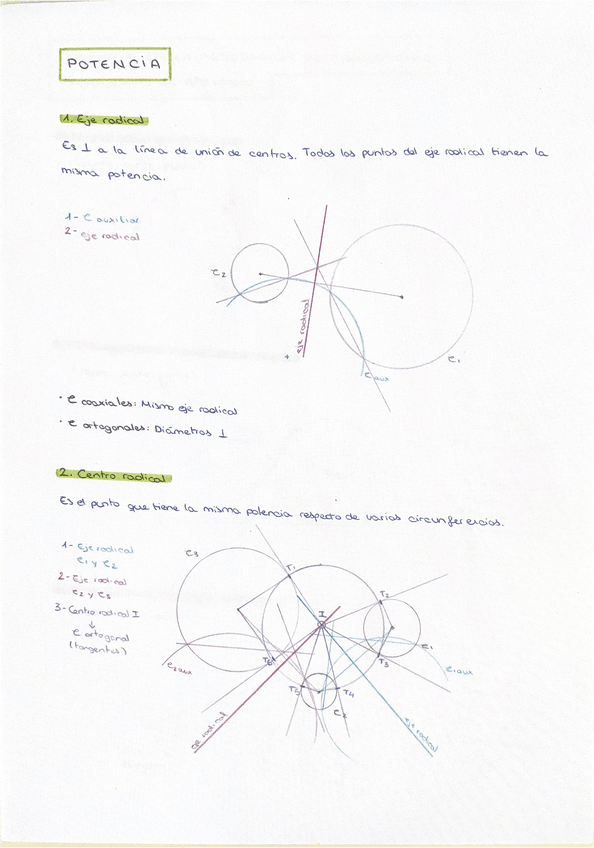 POTENCIA
1. Eje radical
Es ⊥ a la línea de unión de centros. Todos los puntos del eje radical tienen la
misma potencia.
1- C auxiliar
2- eje radical
C2
eje radical
C1
C aux
· C coaxiales: Mismo eje radical
· C ortogonales: Diámetros ⊥
2. Centro radical
Es el punto que tiene la misma potencia respecto de varias circunferencias.
1- Eje radical
C1 y C2
2- Eje radical
C2 y C3
3- Centro radical I
↓
C ortogonal
(tangentes)
C3
T1
T2
I
C1
T3
T6
C2 aux
C1 aux
T5
T4
C2
eje radical
eje radical